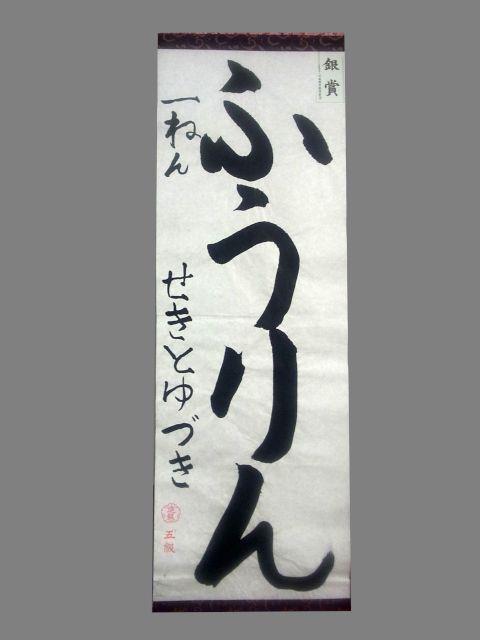 銀賞
ふうりん
一ねん
せきとゆづき
五級